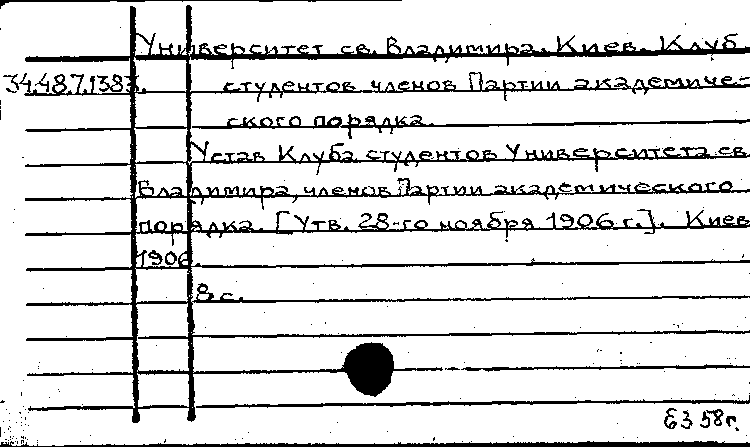 Университет св. Владимира. Киев. Клуб
34.48.7.1383. студентов членов Партии академиче-
ского порядка.
Устав Клуба студентов Университета св
Владимира, членов Партии академического
порядка. [Утв. 28-го ноября 1906 г.]. Киев
1906.
8 с.
Б3 58г.